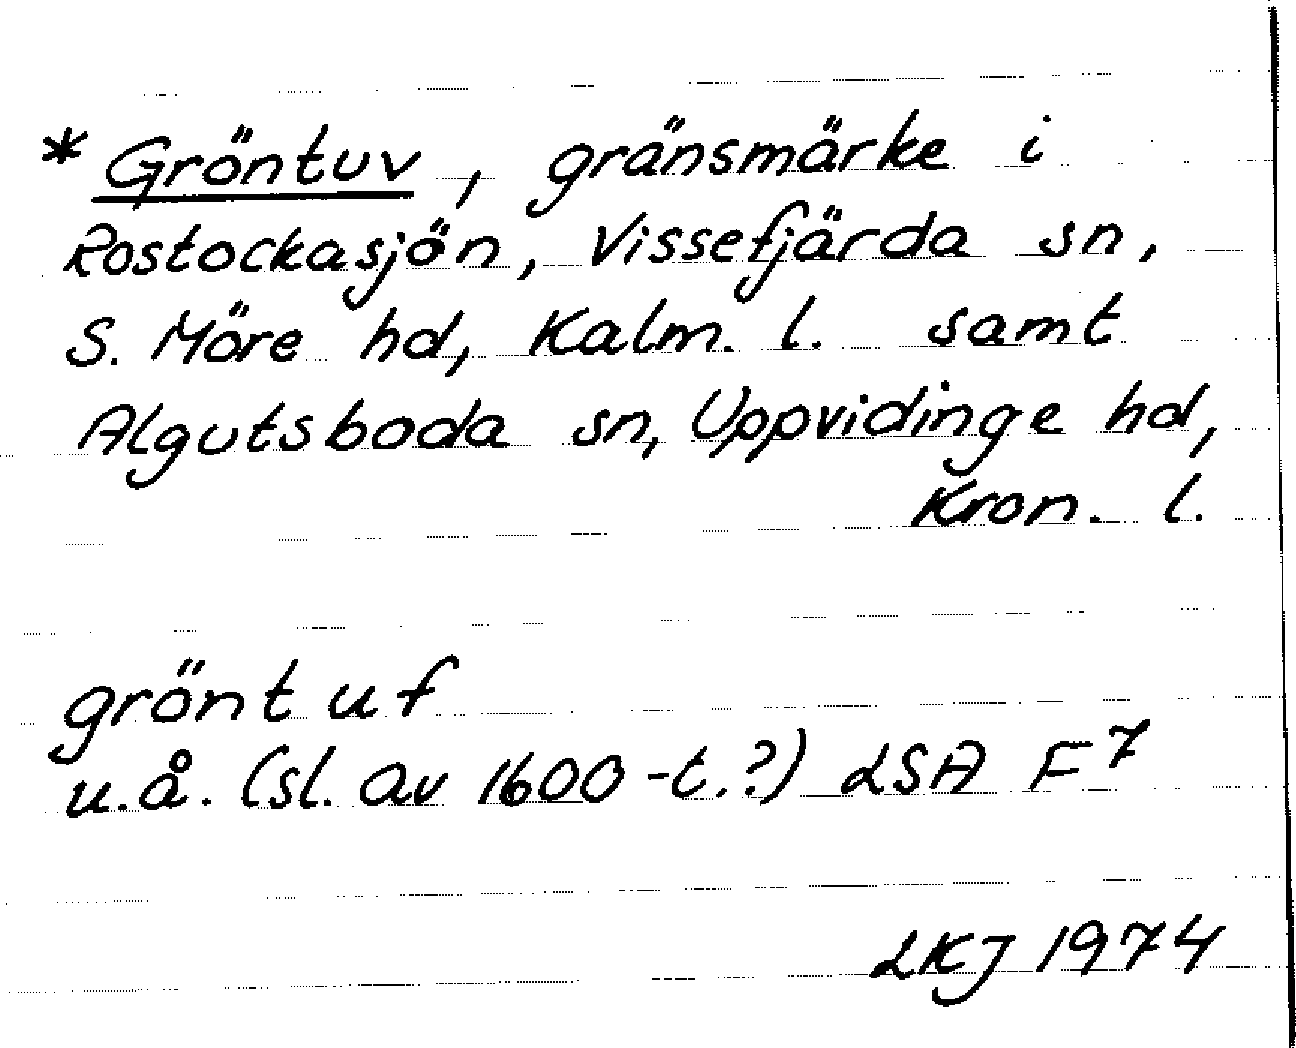 * Gröntuv, gränsmärke i
Rostockasjön, Vissefjärda sn,
S. Möre hd, Kalm. l. samt
Algutsboda sn, Uppvidinge hd,
Kron. l.
gröntuf
u.å. (sl. av 1600-t.?) LSA F⁷
LKJ 1974